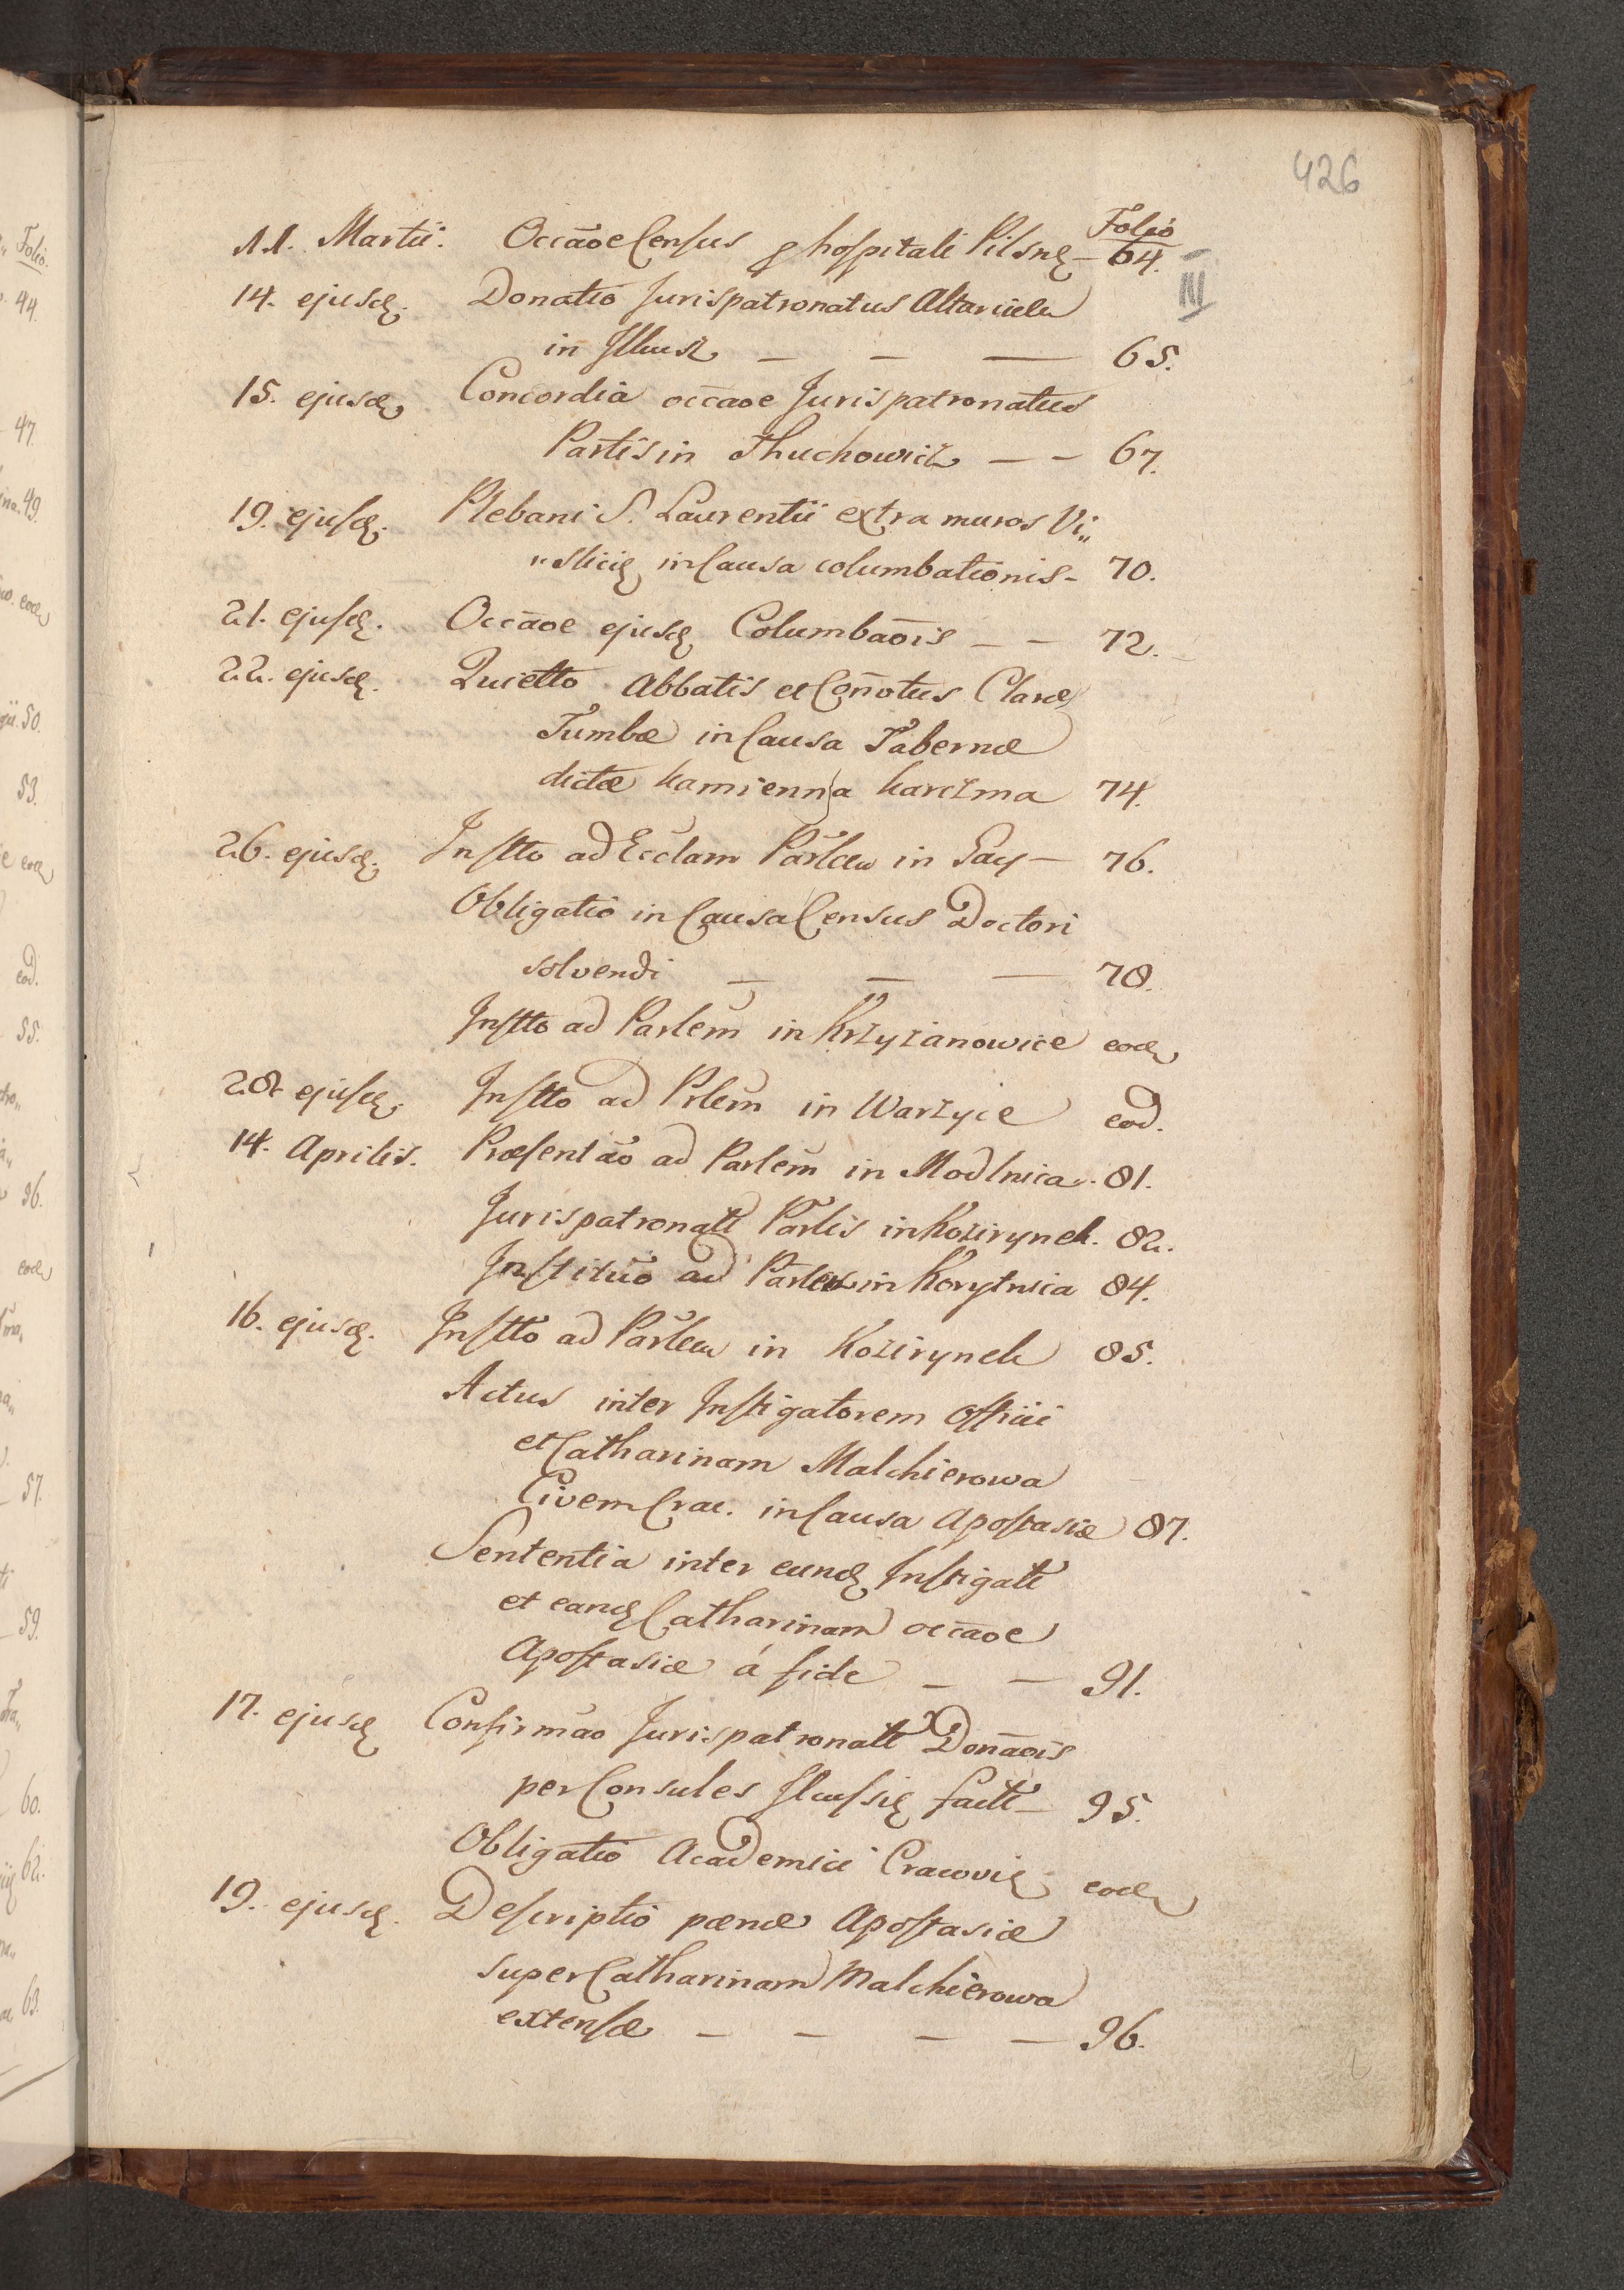 426
Folio
11. Martii. Occāoe Census p hospitali Pilsnę – 64.
III
14. ejusdę. Donatio Jurispatronatus Altariælæ
in Illkusz — — — 65.
15. ejusdę Concordia occāoe Jurispatronatus
Partis in Thuchowicz — — 67.
19. ejusdę. Plebani S. Laurentii extra muros Vi„
„slicię in Causa columbationis – 70.
21. ejusdę. Occāoe ejusdę Columbaōis — — 72.
22. ejusdę. Quietto Abbatis et Coñotus Claræ
Tumbæ in Causa Tabernæ
dictæ kamienna karczma 74.
26. ejusdę. Instto ad Ecclam Parlem in Gay — 76.
Obligatio in Causa Census Doctori
solvendi — — — 78.
Instto ad Parlem in Krzyżanowice eodę
28 ejusdę. Instto ad Prlem in Warzyce eod.
14. Aprilis. Præsentāo ad Parlem in Modlnica. 81.
Jurispatronatt Parlis in Kozirynek. 82.
Institūo ad Parlem in Korytnica 84.
16. ejusdę. Instto ad Parlem in Kozirynek 85.
Actus inter Instigatorem Offícii
et Catharinam Malchierowa
Civem Crac. in Causa Apostasiæ 87.
Sententia inter eundę Instigatt
et eandę Catharinam occāoe
Apostasiæ á fide — — 91.
17. ejusdę Confirmāo Jurispatronatt Donāois
per Consules Ilkussię factt – 95.
Obligatio Academici Cracovię eodę
19. ejusdę. Descriptio pœnæ Apostasiæ
super Catharinam Malchierowa
extensæ — — — — 96.